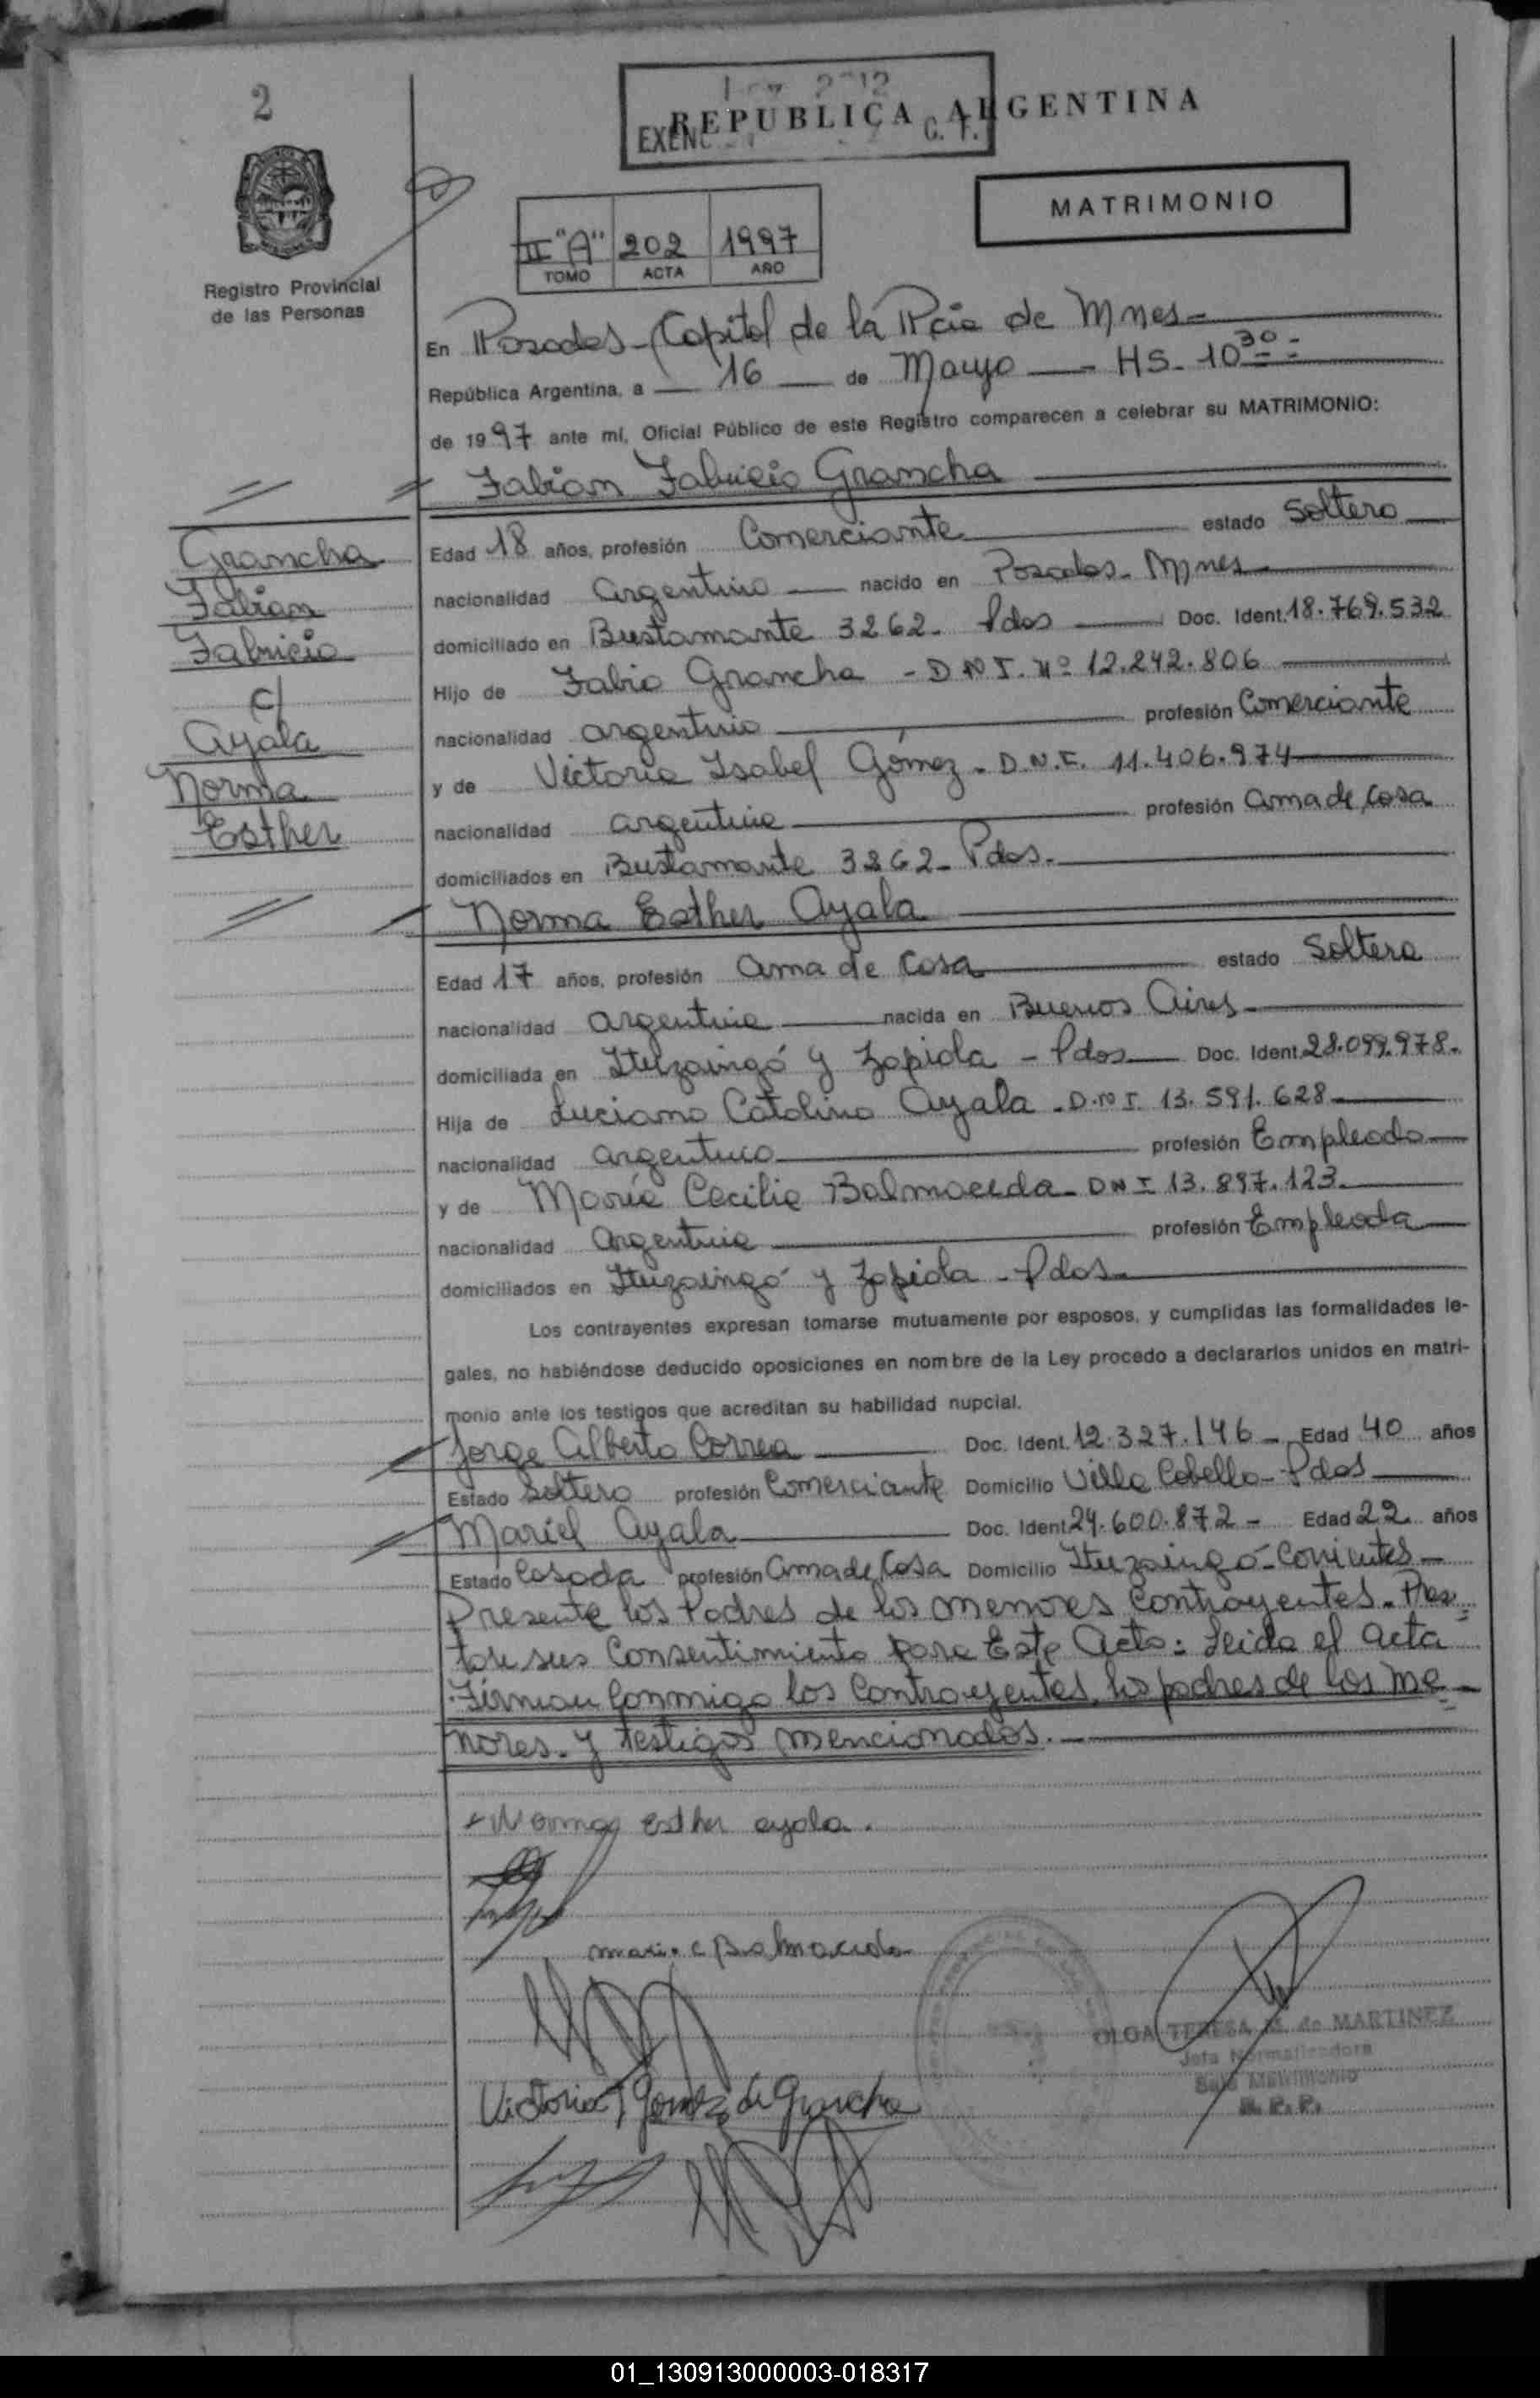 2
REPUBLICA ARGENTINA
EXENC
C. F.
MATRIMONIO
II "A" 202 1997
TOMO ACTA AÑO
Registro Provincial
de las Personas
En Posadas - Capital de la Pcia de Mnes -
República Argentina, a 16 de Mayo - HS. 10 30
de 1997 ante mí, Oficial Público de este Registro comparecen a celebrar su MATRIMONIO:
Fabian Fabricio Grancha
Grancha
Fabian
Fabricio
c/
Ayala
Norma
Esther
Edad 18 años, profesión Comerciante estado Soltero
nacionalidad argentino nacido en Posadas - Mnes
domiciliado en Bustamante 3262 - Pdas Doc. Ident. 18.769.532
Hijo de Fabio Grancha - DNI. Nº 12.242.806
nacionalidad argentino profesión Comerciante
y de Victoria Isabel Gómez - D.N.I. 11.406.974
nacionalidad argentina profesión ama de casa
domiciliados en Bustamante 3262 - Pdas.
Norma Esther Ayala
Edad 17 años, profesión ama de casa estado Soltera
nacionalidad argentina nacida en Buenos Aires
domiciliada en Ituzaingó y Zapiola - Pdas Doc. Ident. 28.099.978.
Hija de Luciano Catalino Ayala - D.N I. 13.591.628
nacionalidad argentino profesión Empleado
y de María Cecilia Balmaceda - DNI 13.897.123
nacionalidad Argentina profesión Empleada
domiciliados en Ituzaingó y Zapiola - Pdas
Los contrayentes expresan tomarse mutuamente por esposos, y cumplidas las formalidades le-
gales, no habiéndose deducido oposiciones en nombre de la Ley procedo a declararlos unidos en matri-
monio ante los testigos que acreditan su habilidad nupcial.
Jorge Alberto Correa Doc. Ident. 12.327.146 - Edad 40 años
Estado Soltero profesión Comerciante Domicilio Villa Cabello - Pdas
Mariel Ayala Doc. Ident. 24.600.872 - Edad 22 años
Estado Casada profesión ama de Casa Domicilio Ituzaingó - Corrientes
Presente los Padres de los menores Contrayentes. Pres
tan sus Consentimiento para Este Acto: Leida el acta
Firman Conmigo los Contrayentes, los padres de los me
nores. y testigos mencionados.
Norma esther ayala.
maria c Balmaceda
OLGA TERESA de MARTINEZ
Jefa Normalizadora
Sala Matrimonio
R. P. P.
Victoria I Gomez de Grancha
01_130913000003-018317